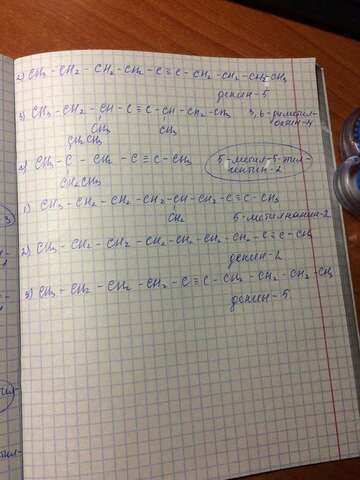 2) CH₃ - CH₂ - CH₂ - CH₂ - C ≡ C - CH₂ - CH₂ - CH₂ - CH₃
децин-5
3) CH₃ - CH₂ - CH - C ≡ C - CH - CH₂ - CH₃ 3,6-диметил-
CH₃ CH₃ октин-4
CH₂CH₃
4) CH₃ - C - CH₂ - C ≡ C - CH₃ 5-метил-5-тил-
CH₂CH₃ гептин-2
1) CH₃ - CH₂ - CH₂ - CH₂ - CH - CH₂ - C ≡ C - CH₃
CH₃ 5-метилнонин-2
2) CH₃ - CH₂ - CH₂ - CH₂ - CH₂ - CH₂ - CH₂ - C ≡ C - CH₃
децин-2
3) CH₃ - CH₂ - CH₂ - CH₂ - C ≡ C - CH₂ - CH₂ - CH₂ - CH₃
децин-5